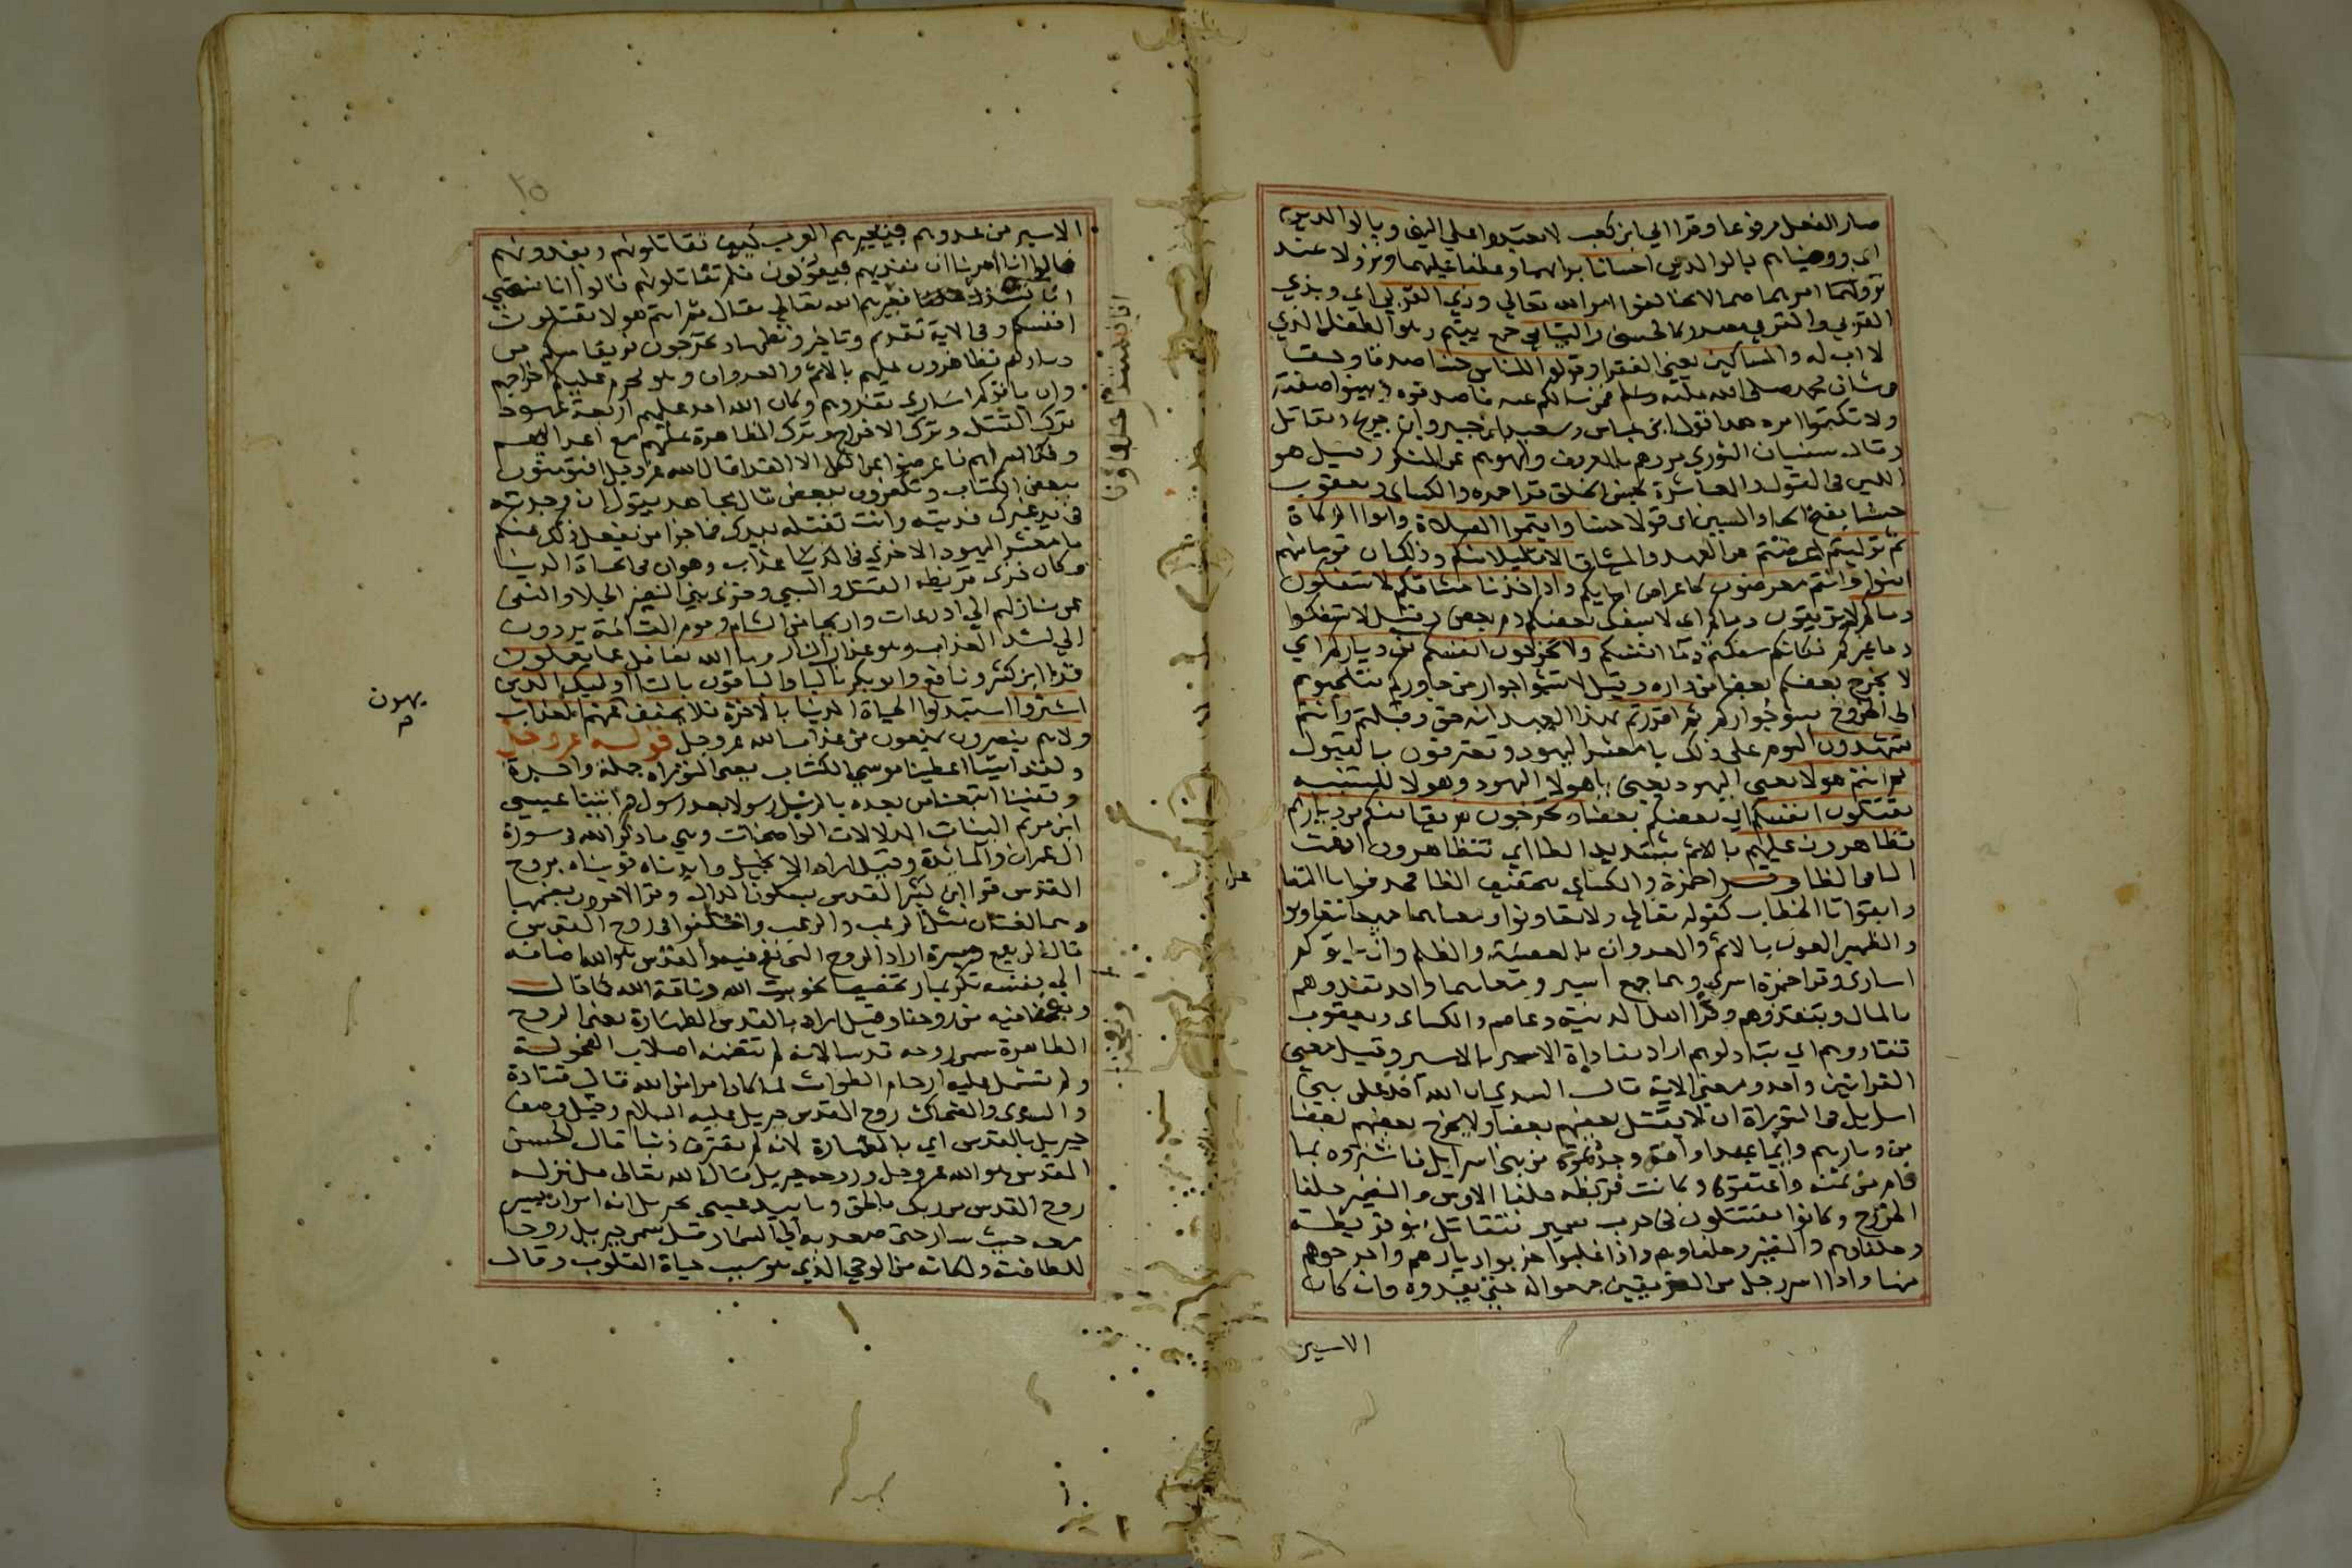 صار الفعل مرفوعا وقرا ابي ابن كعب لا تعبدوا علي النهي وبالوالدين
اي ووصيناهم بالوالدين احسانا برا بهما وعطفا عليهما ونزولا عند
امرهما فيما لا يخالف امر الله تعالي وذي القربي اي وبذي
القربي والقربي مصدر كالحسني واليتامي جمع يتيم وهو الطفل الذي
لا اب له والمساكين يعني الفقرا وقولوا للناس حسنا صدقا وحقا
في شان محمد صلي الله عليه وسلم فمن سالكم عنه فاصدقوه وبينوا صفته
ولا تكتموا امره هذا قول ابن عباس وسعيد ابن جبير وابن جريج ومقاتل
وقال سفيان الثوري مروهم بالمعروف وانهوهم عن المنكر وقيل هو
اللين في القول والمعاشرة بحسن الخلق قرا حمزه والكساى ويعقوب
حسنا بفتح الحا والسين اى قولا حسنا واقيموا الصلاة واتوا الزكاة
ثم توليتم اعرضتم عن العهد والميثاق الا قليلا منكم وذلك ان قوما منهم
امنوا وانتم معرضون كاعراض ابايكم واذ اخذنا ميثاقكم لا تسفكون
دماكم لا تريقون دماكم اى لا يسفك بعضكم دم بعض وقيل لا تسفكوا
دما غيركم فكانكم سفكتم دما انفسكم ولا تخرجون انفسكم من دياركم اي
لا يخرج بعضكم بعضا من داره وقيل لا تسيوا جوار من جاوركم فتلجيوهم
الى الخروج بسو جواركم ثم اقررتم بهذا العهد انه حق وقبلتم وانتم
تشهدون اليوم على ذلك يا معشر اليهود وتعترفون بالقبول
ثم انتم هولا يعني اليهود يعني يا هولا اليهود وهولا للتنبيه
تقتلون انفسكم اي بعضكم بعضا وتخرجون فريقا منكم من ديارهم
تظاهرون عليهم بالاثم بتشديد الظا اي تتظاهرون ادغمت
التا في الظا وقرا عاصم وحمزة والكساى بتخفيف الظا فحذفوا تا التفاعل
وابقوا تا الخطاب كقوله تعالى ولا تعاونوا ومعناهما جميعا تتعاونون
والظهير العون بالاثم والعدوان بالمعصية والظلم وان ياتوكم
اسارى وقرا حمزة اسرى وهما جمع اسير ومعناهما واحد تفدوهم
بالمال وتنقذوهم وقرا اهل المدينة وعاصم والكساى ويعقوب
تفادوهم اي تبادلوهم اراد مفاداة الاسير بالاسير وقيل معني
القراتين واحد ومعني الاية قال السدي ان الله اخذ على بني
اسرايل في التوراة ان لا يقتل بعضهم بعضا ولا يخرج بعضهم بعضا
من ديارهم وايما عبد او امة وجدتموه من بني اسرايل فاشتروه بما
قام من ثمنه واعتقوه وكانت قريظه حلفا الاوس والنضير حلفا
الخزرج وكانوا يقتتلون في حرب سمير فتقاتل بنو قريظة
وحلفاوهم والنضير وحلفاوهم واذا غلبوا خربوا ديارهم واخرجوهم
منها واذا اسر رجل من الفريقين جمعوا له حتي يفدوه وان كان
الاسير
٢٥
الاسير من عدوهم فيعيرهم العرب كيف تقاتلونهم وتفدونهم
قالوا انا امرنا ان نفديهم فيقولون فلم تقاتلونهم قالوا انا نستحيي
فعيرهم الله تعالي فقال ثم انتم هولا تقتلون
انفسكم وفي الاية تقديم وتاخير ونظمها وتخرجون فريقا منكم من
ديارهم تظاهرون عليهم بالاثم والعدوان وهو محرم عليكم اخراجهم
وان ياتوكم اسارى تفدوهم وكان الله اخذ عليهم اربعة عهود
ترك القتل وترك الاخراج وترك المظاهرة عليهم مع اعدايهم
وفك اسراهم فاعرضوا عن الكل الا الفدا قال الله عز وجل افتومنون
ببعض الكتاب وتكفرون ببعض قال مجاهد يقول ان وجدته
في يد غيرك فديته وانت تقتله بيدك فما جزا من يفعل ذلك منكم
يا معشر اليهود الا خزي في الدنيا عذاب وهوان في الحياة الدنيا
وكان خزى قريظه القتل والسبي وخزى بني النضير الجلا والنفي
عن منازلهم الي اذرعات واريحا من الشام ويوم القيامة يردون
الي اشد العذاب وهو عذاب النار وما الله بغافل عما يعملون
قرا ابن كثير ونافع وابو بكر باليا والباقون بالتا اوليك الذين
اشتروا استبدلوا الحياة الدنيا بالاخرة فلا يخفف عنهم العذاب
ولا هم ينصرون يمنعون من عذاب الله عز وجل قوله عز وجل
ولقد اتينا اعطينا موسي الكتاب يعني التوراه جملة واحدة
وقفينا اتبعنا من بعده بالرسل رسولا بعد رسول واتينا عيسي
ابن مريم البينات الدلالات الواضحات وهي ما ذكر الله في سورة
ال عمران والمايدة وقيل اراد الانجيل وايدناه قويناه بروح
القدس قرا ابن كثير القدس بسكون الدال وقرا الاخرون بضمها
وهما لغتان مثل الرعب والرعب واختلفوا في روح القدس
قال الربيع وغيره اراد الروح التي نفخ فيه والقدس هو الله اضافه
الي نفسه تكريما وتخصيصا نحو بيت الله وناقة الله كما قال
ونفخنا فيه من روحنا وقيل اراد بالقدس الطهارة يعني الروح
الطاهرة سمي روحه قدسا لانه لم تتضمنه اصلاب الفحولة
ولم تشتمل عليه ارحام الطوامث انما كان امرا من الله قال قتادة
والسدى والضحاك روح القدس جبريل عليه السلام وقيل وصف
جبريل بالقدس اي بالطهارة لانه لم يقترف ذنبا قال الحسن
القدس هو الله عز وجل وروحه جبريل قال الله تعالى قل نزله
روح القدس من ربك بالحق وتاييد عيسي بجبريل انه امر ان يسير
معه حيث سار حتى صعد به الي السما وقيل سمي جبريل روحا
للطافته ولمكانه من الوحي الذي هو سبب حياة القلوب وقال
يهون